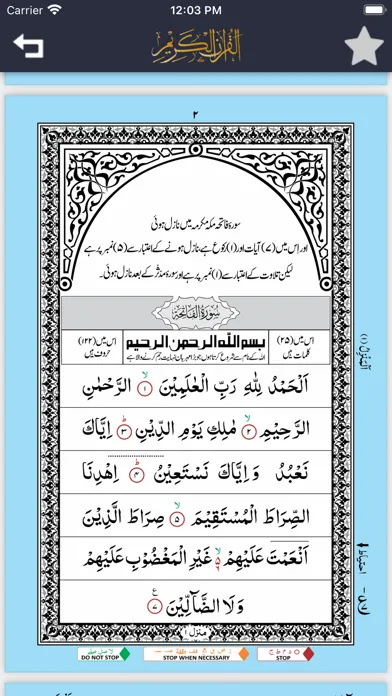 Carrier 12:03 PM
القرآن الكريم
٢
سورۂ فاتحہ مکۂ مکرمہ میں نازل ہوئی
اور اِس میں (۷) آیات اور (۱) رکوع ہے، نازل ہونے کے اعتبار سے (۵) نمبر پر ہے
لیکن تلاوت کے اعتبار سے (۱) نمبر پر ہے اور سورۂ مدثر کے بعد نازل ہوئی۔
سُوْرَةُ الْفَاتِحَةِ
اس میں (۲۵) کلمات ہیں
بسم اللہ الرحمن الرحیم
اللہ کے نام سے شروع کرتا ہوں جو بڑا مہربان نہایت رحم کرنے والا ہے
اس میں (۱۲۲) حروف ہیں
اَلْحَمْدُ لِلّٰهِ رَبِّ الْعٰلَمِيْنَ ۙ۱ الرَّحْمٰنِ
الرَّحِيْمِ ۙ۲ مٰلِكِ يَوْمِ الدِّيْنِ ؕ۳ اِيَّاكَ
نَعْبُدُ وَ اِيَّاكَ نَسْتَعِيْنُ ؕ۴ اِهْدِنَا
الصِّرَاطَ الْمُسْتَقِيْمَ ۙ۵ صِرَاطَ الَّذِيْنَ
اَنْعَمْتَ عَلَيْهِمْ ۙ۬ۦ غَيْرِ الْمَغْضُوْبِ عَلَيْهِمْ
وَلَا الضَّآلِّيْنَ ۷ ع
منزل ۱
DO NOT STOP
STOP WHEN NECESSARY
STOP